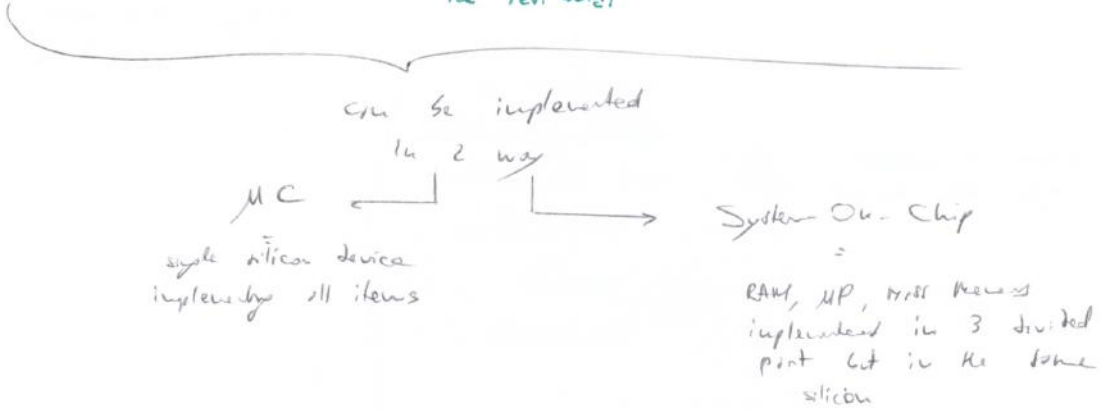 can be implemented
in 2 way
μC
=
single silicon device
implementing all items
System On. Chip
=
RAM, μP, mass memory
implemented in 3 divided
part but in the same
silicon